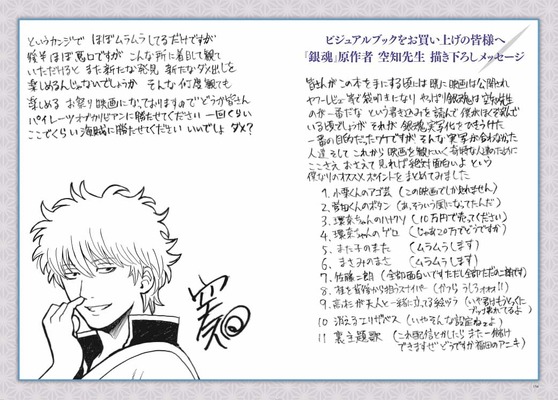 ビジュアルブックをお買い上げの皆様へ
『銀魂』原作者 空知先生 描き下ろしメッセージ
皆さんがこの本を手にする頃には既に映画は公開され
ヤフーレビュー
やっぱり銀魂は空知先生
のが一番だな という書きこみを読んで
いる頃でしょうが それが 銀魂実写化をひきうけた
一番の目的だったワケですが そんな 実写が合わなかった
人達 そして これから 映画を観にいく奇特な人達のために
ここさえ おさえて 見れば絶対面白いよ という
僕なりのオススメポイントをまとめてみました
1. 小栗くんのアゴ芸 (この映画でしか見れません)
2. 菅田くんのボタン (あ、そういう風になってたんだ)
3. 環奈ちゃんのハナクソ (10万円で売ってください)
4. 環奈ちゃんのゲロ (じゃあ20万でどうですか)
5. また子のまた (ムラムラします)
6. まさみのまさみ (ムラムラします)
7. 佐藤二朗 (全部面白いです ただし全部ただの二朗です)
8. 桂を背後から狙うスナイパー (かつら うしろォオオ!!)
9. 高杉が夫人と一緒に立てる絵づら
10 消えるエリザベス (いやそんな設定ねェよ)
11 裏主題歌 (これ配信とかしたら また一儲け
できますぜ どうですか 福田のアニキ)
というカンジで ほぼムラムラしてるだけですが
後半ほぼ悪口ですが こんな所に着目して観て
いただけると また新たな発見 新たなダメ出しを
楽しめるんじゃないでしょうか そんな 何度観ても
楽しめる お祭り映画になっておりますので どうか皆さん
パイレーツオブカリビアンに勝たせてください 一回くらい
ここでくらい海賊に勝たせてください いいでしょ ダメ?